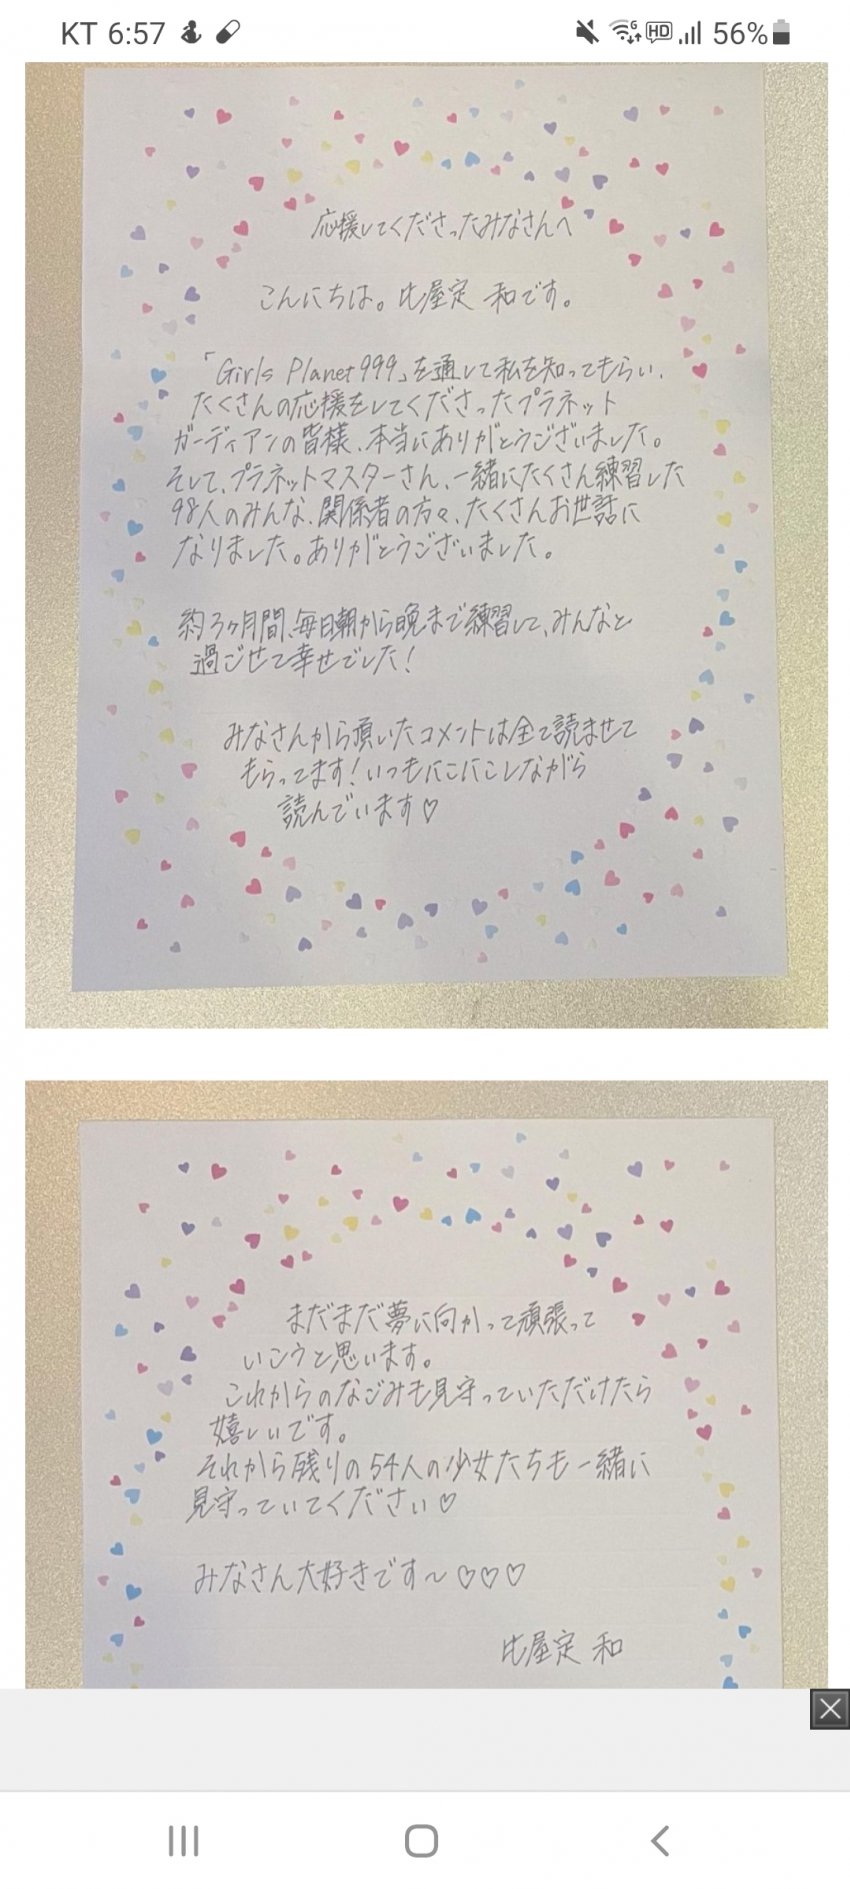 KT 6:57
HD 56%
応援してくださったみなさんへ
こんにちは。比屋定 和です。
「Girls Planet 999」を通して私を知ってもらい、
たくさんの応援をしてくださったプラネット
ガーディアンの皆様、本当にありがとうございました。
そして、プラネットマスターさん、一緒にたくさん練習した
98人のみんな、関係者の方々、たくさんお世話に
なりました。ありがとうございました。
約3ヶ月間、毎日朝から晩まで練習して、みんなと
過ごせて幸せでした!
みなさんから頂いたコメントは全て読ませて
もらってます!いつもにこにこしながら
読んでいます♡
まだまだ夢に向かって頑張って
いこうと思います。
これからのなごみも見守っていただけたら
嬉しいです。
それから残りの54人の少女たちも一緒に
見守っていてください♡
みなさん大好きです〜♡♡♡
比屋定 和